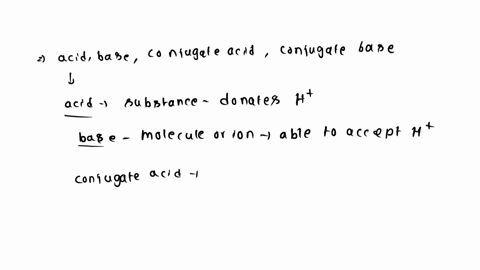 2) acid, base, conjugate acid, conjugate base
↓
acid → substance - donates H⁺
base - molecule or ion → able to accept H⁺
conjugate acid →